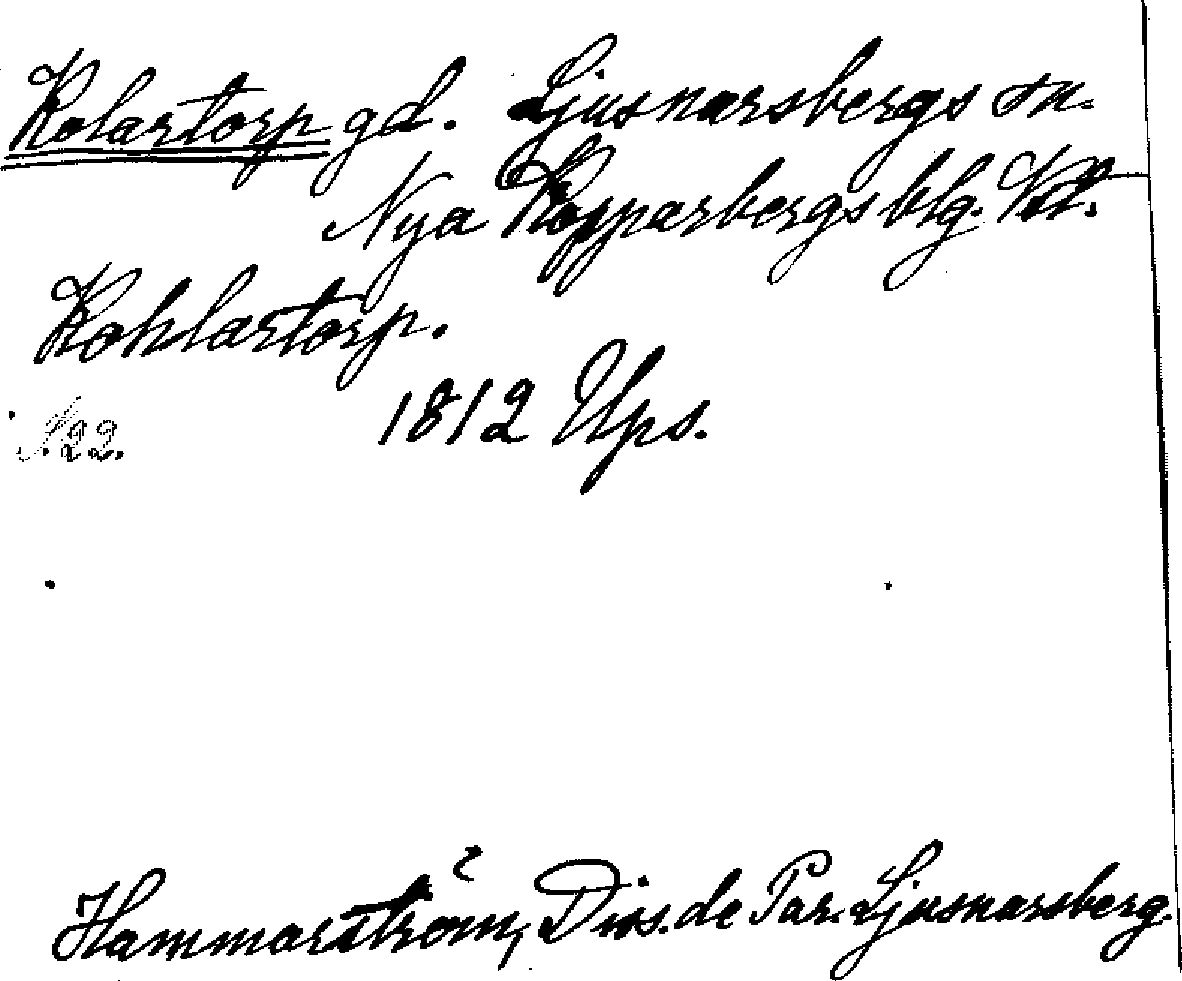 Kolartorp gd. Ljusnarsbergs sn.
Nya Kopparbergs blg. Kbt.
Kohlartorp.
1812 Ups.
s. 22.
Hammarström, Diss. de Par. Ljusnarsberg.